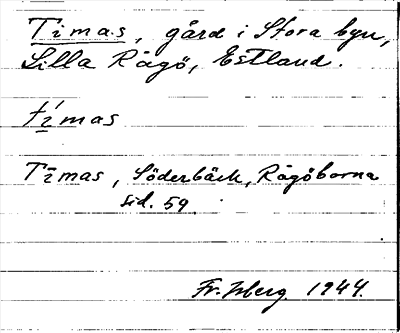 Timas, gård i Stora byn,
Lilla Rågö, Estland.
tímas
Tīmas, Söderbäck, Rågöborna
sid. 59.
Fr. Isberg. 1944.